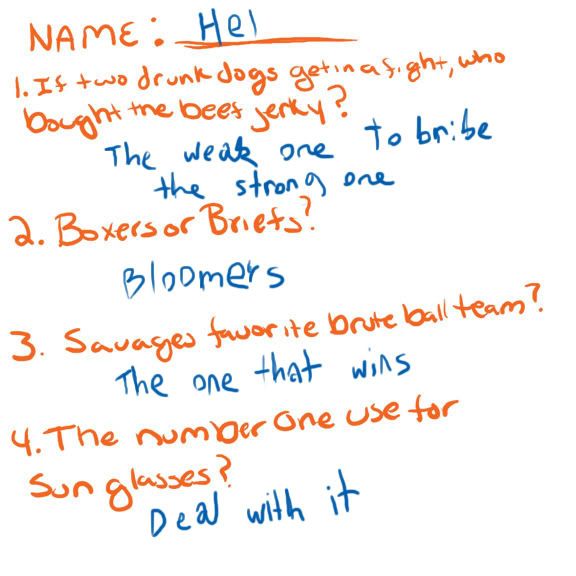 NAME: Hel
1. If two drunk dogs get in a fight, who
bought the beef jerky?
The weak one to bribe
the strong one
2. Boxers or Briefs?
Bloomers
3. Savages favorite brute ball team?
The one that wins
4. The number one use for
sun glasses?
Deal with it